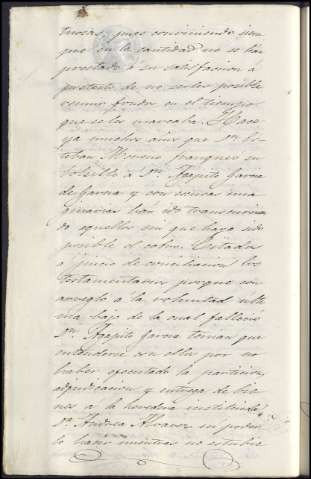 pues conviniendo
que en la cantidad no se ha
prestado á su satisfaccion á
pretesto de no serles posible
reunir fondos en el tiempo
que se les marcaba. Hace
ya muchos años que Dn. Es-
teban Moreno franqueó su
bolsillo á Dn. Agapito Garcia
de Garcia y con escusas ima-
ginarias han ido transcurrien-
do aquellos sin que haya sido
posible el cobro. Citados
á juicio de conciliacion los
testamentarios porque con
arreglo á la voluntad ulti-
ma bajo de la cual falleció
Dn. Agapito Garcia tenian que
entenderse con ellos por no
haber ejecutado la particion
adjudicacion y entrega de bie-
nes á la heredera instituida
Da. Andrea Alvarez ni poder-
lo hacer mientras no estubie-